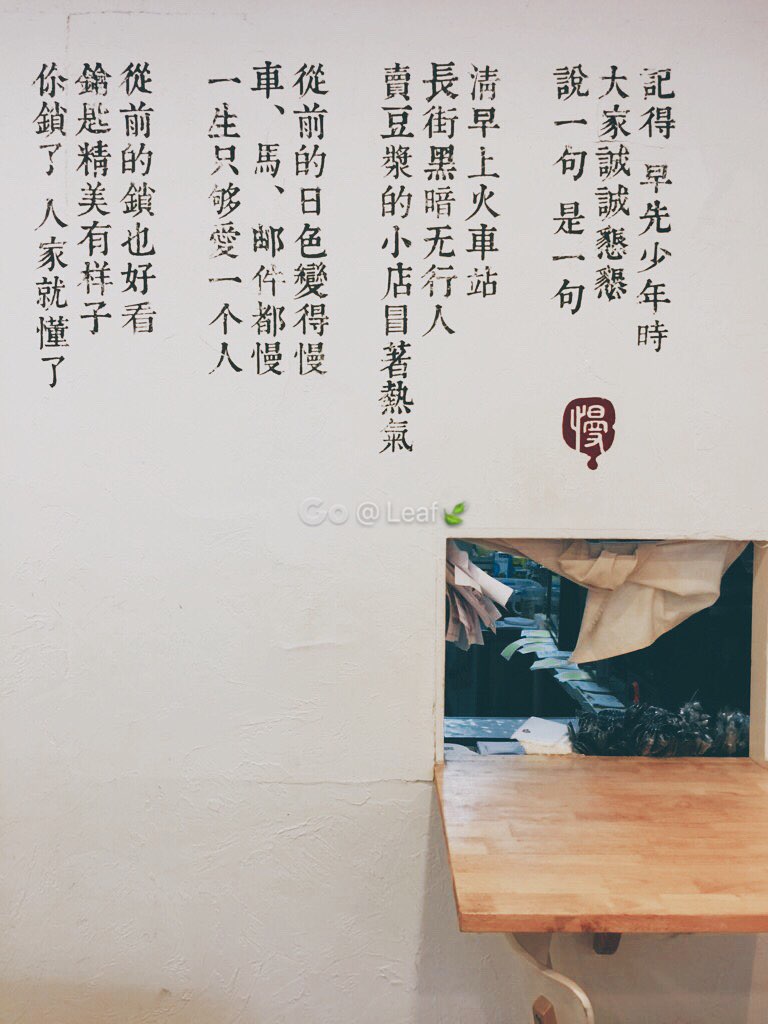 記得 早先少年時
大家誠誠懇懇
說一句 是一句
清早上火車站
長街黑暗无行人
賣豆漿的小店冒著熱氣
從前的日色變得慢
車、馬、邮件都慢
一生只够愛一个人
從前的鎖也好看
鑰匙精美有样子
你鎖了 人家就懂了
慢
Go @ Leaf🌿